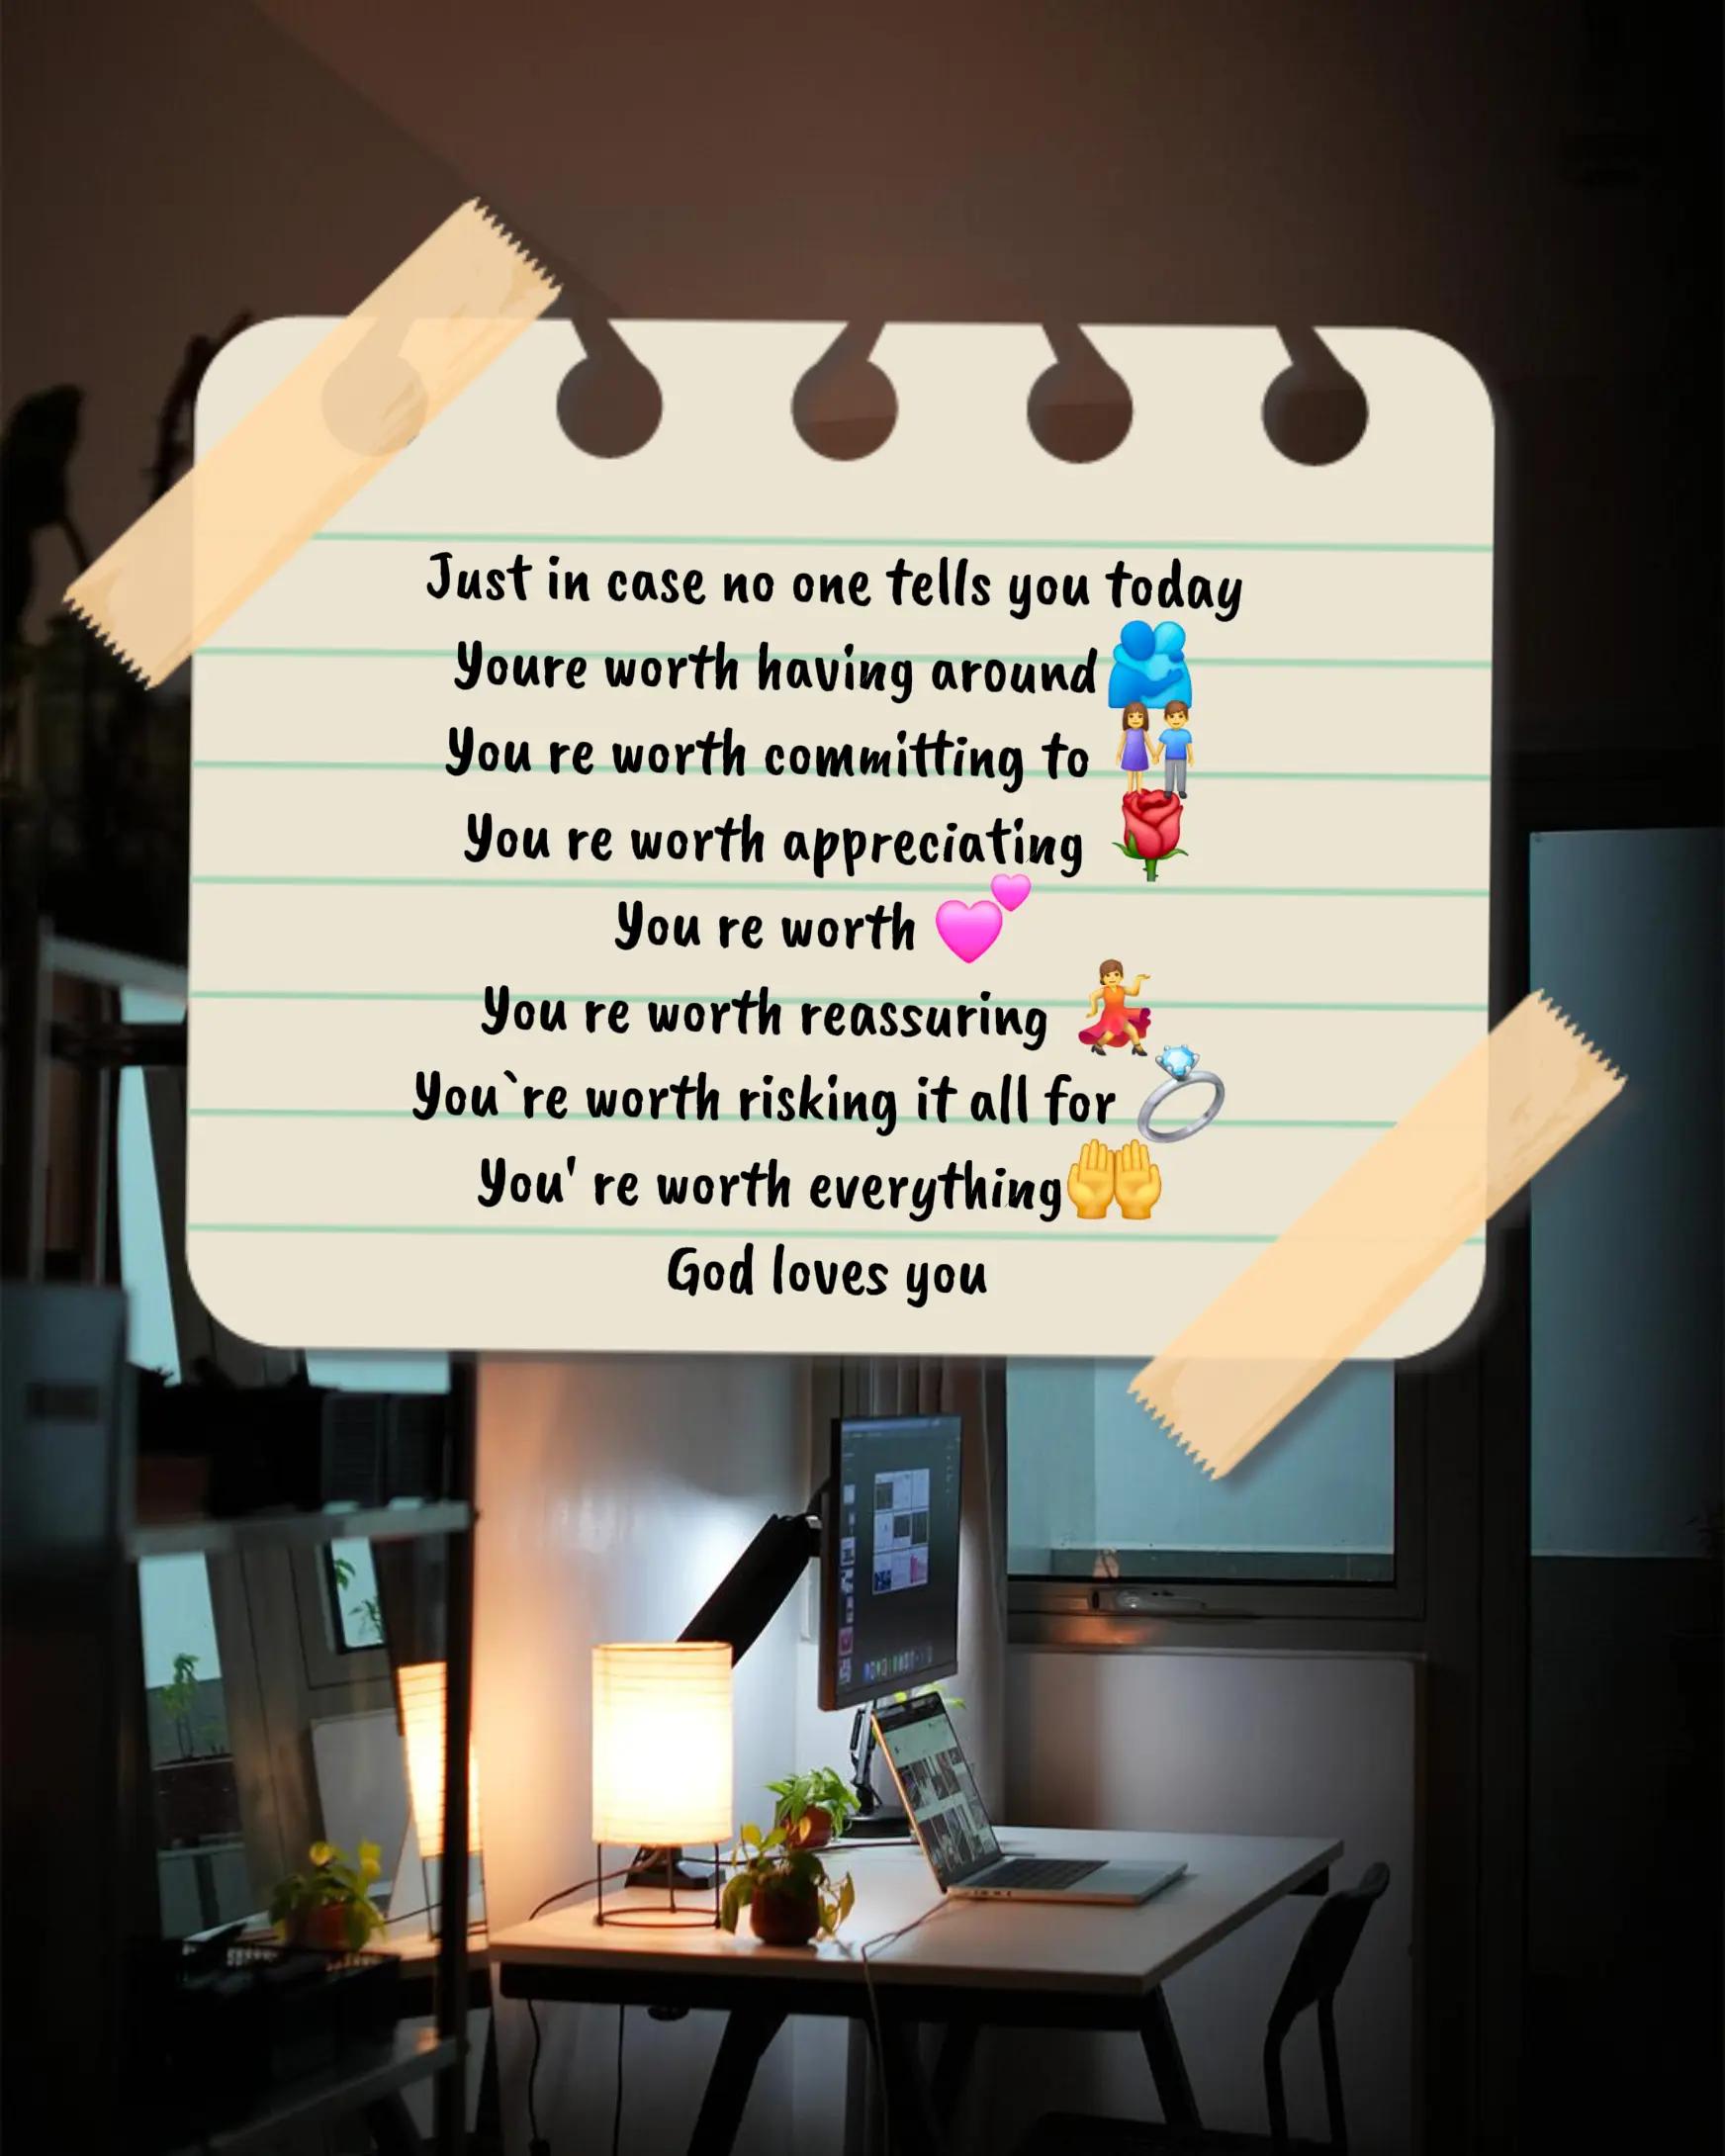 Just in case no one tells you today
Youre worth having around🫂
You re worth committing to 👫
You re worth appreciating 🌹
You re worth 💕
You re worth reassuring 💃
You`re worth risking it all for 💍
You' re worth everything🤲
God loves you